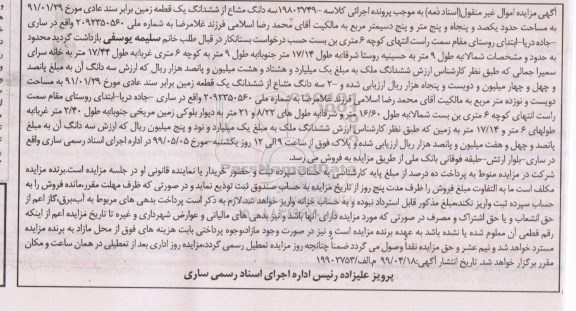 آگهی مزایده اموال غیر منقول(اسناد ذمه) به موجب پرونده اجرائی کلاسه ۱۹۸۰۳۷۴۹سه دانگ مشاع از ششدانگ یک قطعه زمین برابر سند عادی مورخ ۹۱/۰۱/۲۹
به مساحت حدود یکصد و پنجاه و پنج متر و پنج دسیمتر مربع به مالکیت آقای محمد رضا اسلامی فرزند غلامرضا به شماره ملی ۲۰۹۲۳۵۰۵۶۰ واقع در ساری
–جاده دریا-ابتدای روستای مقام سمت راست انتهای کوچه ۶متری بن بست حسب درخواست بستانکار در قبال طلب خانم سلیمه یوسفی بازداشت گردید محدود
به حدود و مشخصات شمالا:به طول ۹ متر به حسینیه روستا شرقا:به طول ۱۷/۱۴ متر جنوبا:به طول ۹ متر به کوچه ۶ متری غربا:به طول ۱۷/۳۴ متر به خانه سرای
سمیرا جمالی که طبق نظر کارشناس ارزش ششدانگ ملک به مبلغ یک میلیارد و هشتاد و هشت میلیون و پانصد هزار ریال که ارزش سه دانگ آن به مبلغ پانصد
و چهل و چهار میلیون و دویست و پنجاه هزار ریال ارزیابی شده و –۲ سه دانگ مشاع از ششدانگ یک قطعه زمین برابر سند عادی مورخ ۹۱/۰۱/۲۹ به مساحت
دویست و نوزده متر مربع به مالکیت آقای محمد رضا اسلامی فرزند غلامرضا به شماره ملی ۲۰۹۲۳۵۰۵۶۰ واقع در ساری –جاده دریا-ابتدای روستای مقام سمت
راست انتهای کوچه ۶متری بن بست شمالا:به طول ۱۶/۶۰ متر و شرقا:به طول های ۸/۲۲ و ۲۱ متر به دیوار بلوکی زمین مریخی جنوبا:به طول ۲/۴۰ متر غربا:به
طولهای ۶ متر و ۱۷/۱۴ متر به زمین که طبق نظر کارشناس ارزش ششدانگ ملک به مبلغ یک میلیارد و نود و پنج میلیون ریال که ارزش سه دانگ آن به مبلغ
پانصد و چهل و هفت میلیون و پانصد هزار ریال ارزیابی شده و پلاک فوق از ساعت ۹ الی ۱۲ روز یکشنبه-مورخ ۹۹/۰۵/۰۵ در اداره اجرای اسناد رسمی ساری واقع
در ساری-بلوار ارتش-طبقه فوقانی بانک ملی از طریق مزایده به فروش می رسد.
شرکت در مزایده منوط به پرداخت ده درصد از مبلغ پایه کارشناسی به حساب سپرده ثبت و حضور خریدار یا نماینده قانونی او در جلسه مزایده است.برنده مزایده
مکلف است ما به التفاوت مبلغ فروش را ظرف مدت پنج روز از تاریخ مزایده به حساب صندوق ثبت تودیع نماید و در صورتی که ظرف مهلت مقرر،مانده فروش را به
حساب سپرده ثبت واریز نکند،مبلغ مذکور قابل استرداد نبوده و به حساب خزانه واریز خواهد شد.لازم به ذکر است پرداخت بدهی های مربوط به آب،برق،گاز اعم از
حق انشعاب و یا حق اشتراک و مصرف در صورتی که مورد مزایده دارای آنها باشد و نیز بدهی های مالیاتی و عوارض شهرداری و غیره تا تاریخ مزایده اعم از اینکه
رقم قطعی آن معلوم شده یا نشده باشد به عهده برنده مزایده است و نیز در صورت وجود مازاد،وجوه پرداختی بابت هزینه های فوق از محل مازاد به برنده مزایده
مسترد خواهد شد و نیم عشر و حق مزایده نقدا وصول می گردد ضمنا چنانچه روز مزایده تعطیل رسمی گردد،مزایده روز اداری بعد از تعطیلی در همان ساعت و مکان
مقرر برگزار خواهد شد. تاریخ انتشار آگهی:۹۹/۰۴/۱۸ م.الف/۱۹۹۰۲۷۵۳
پرویز علیزاده رئیس اداره اجرای اسناد رسمی ساری